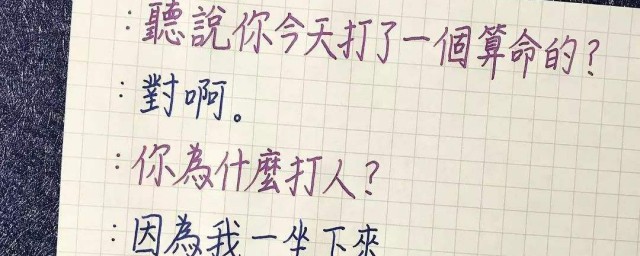 ：聽說你今天打了一個算命的？
：對啊。
：你為什麼打人？
：因為我一坐下來